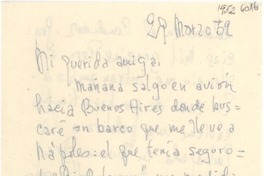 1952 6016
29 Marzo 52
Mi querida amiga:
Mañana salgo en avión
hacia Buenos Aires donde bus-
caré un barco que me lleve a
Nápoles: el que tenía seguro-